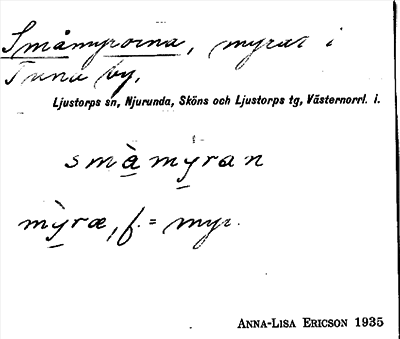 Småmyrorna, myrar i
Tuna by.
Ljustorps sn, Njurunda, Sköns och Ljustorps tg, Västernorrl. i.
småmyran
mỳræ, f. = myr.
ANNA-LISA ERICSON 1935